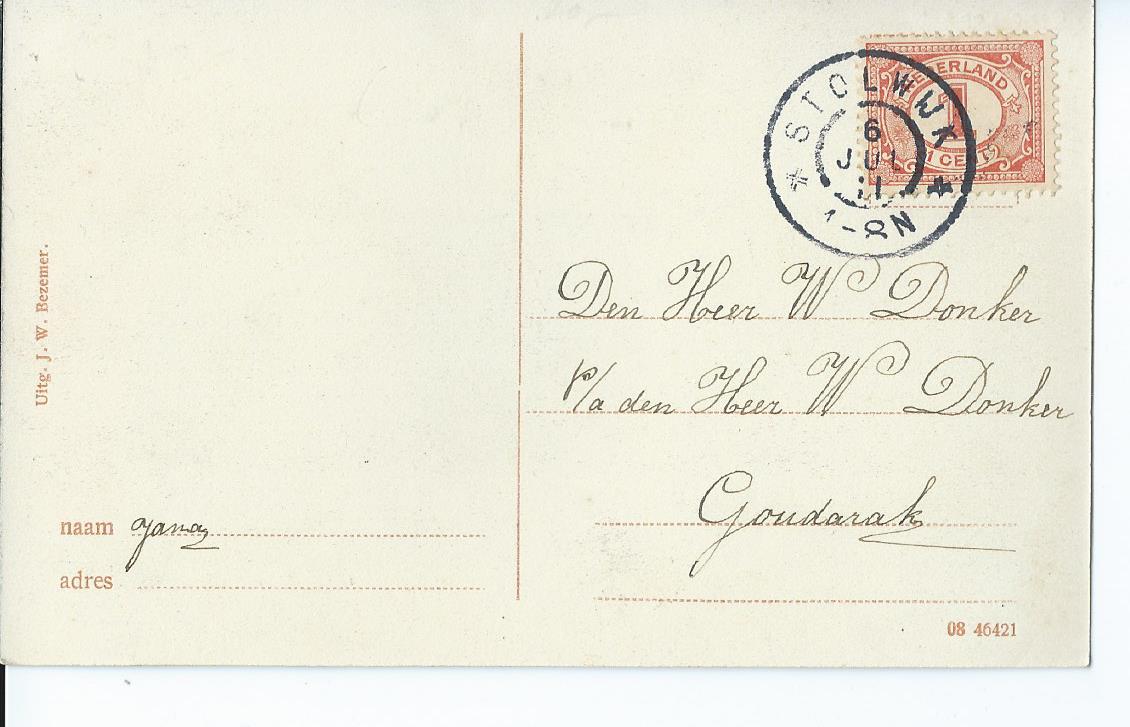 NEDERLAND
1
1 CENT
STOLWIJK
6
JUL
11
-8N
Uitg. J. W. Bezemer.
Den Heer W Donker
p/a den Heer W Donker
Goudarak
naam
adres
08 46421